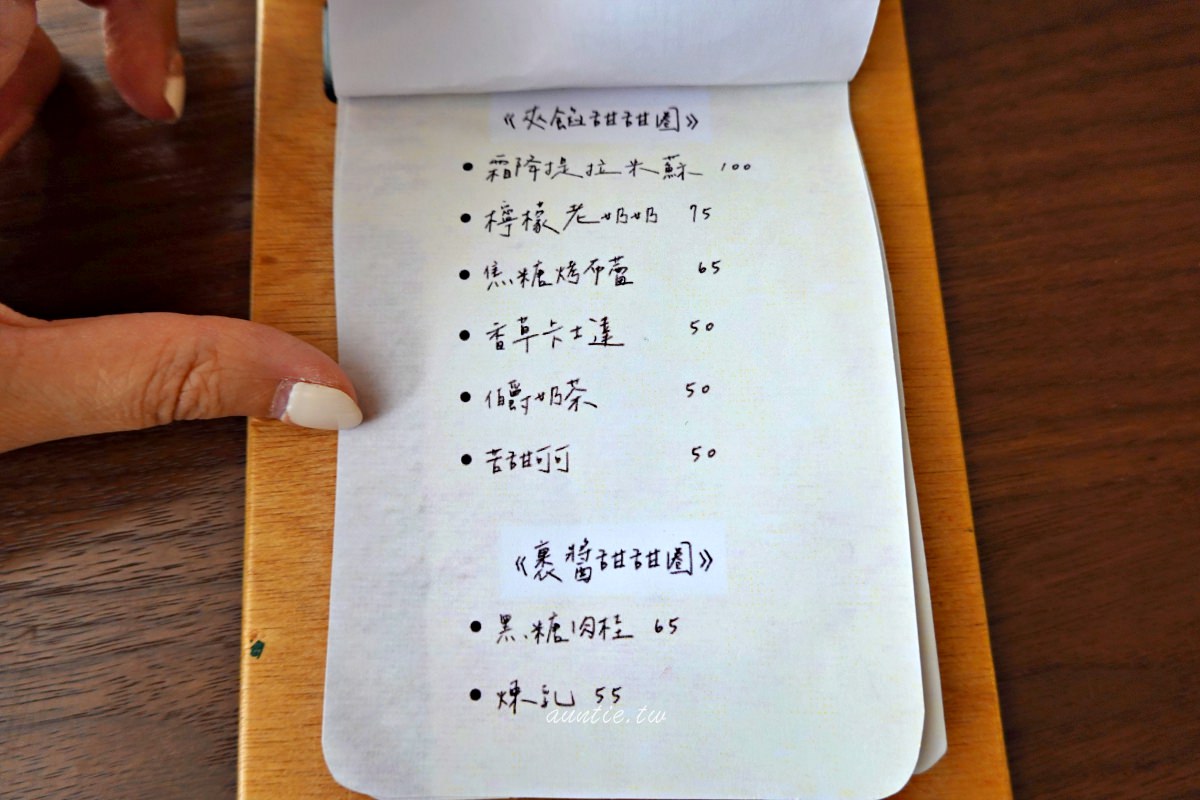 《夾餡甜甜圈》
• 霜降提拉米蘇 100
• 檸檬老奶奶 75
• 焦糖烤布蕾 65
• 香草卡士達 50
• 伯爵奶茶 50
• 苦甜可可 50
《裹醬甜甜圈》
• 黑糖肉桂 65
• 煉乳 55
auntie.tw